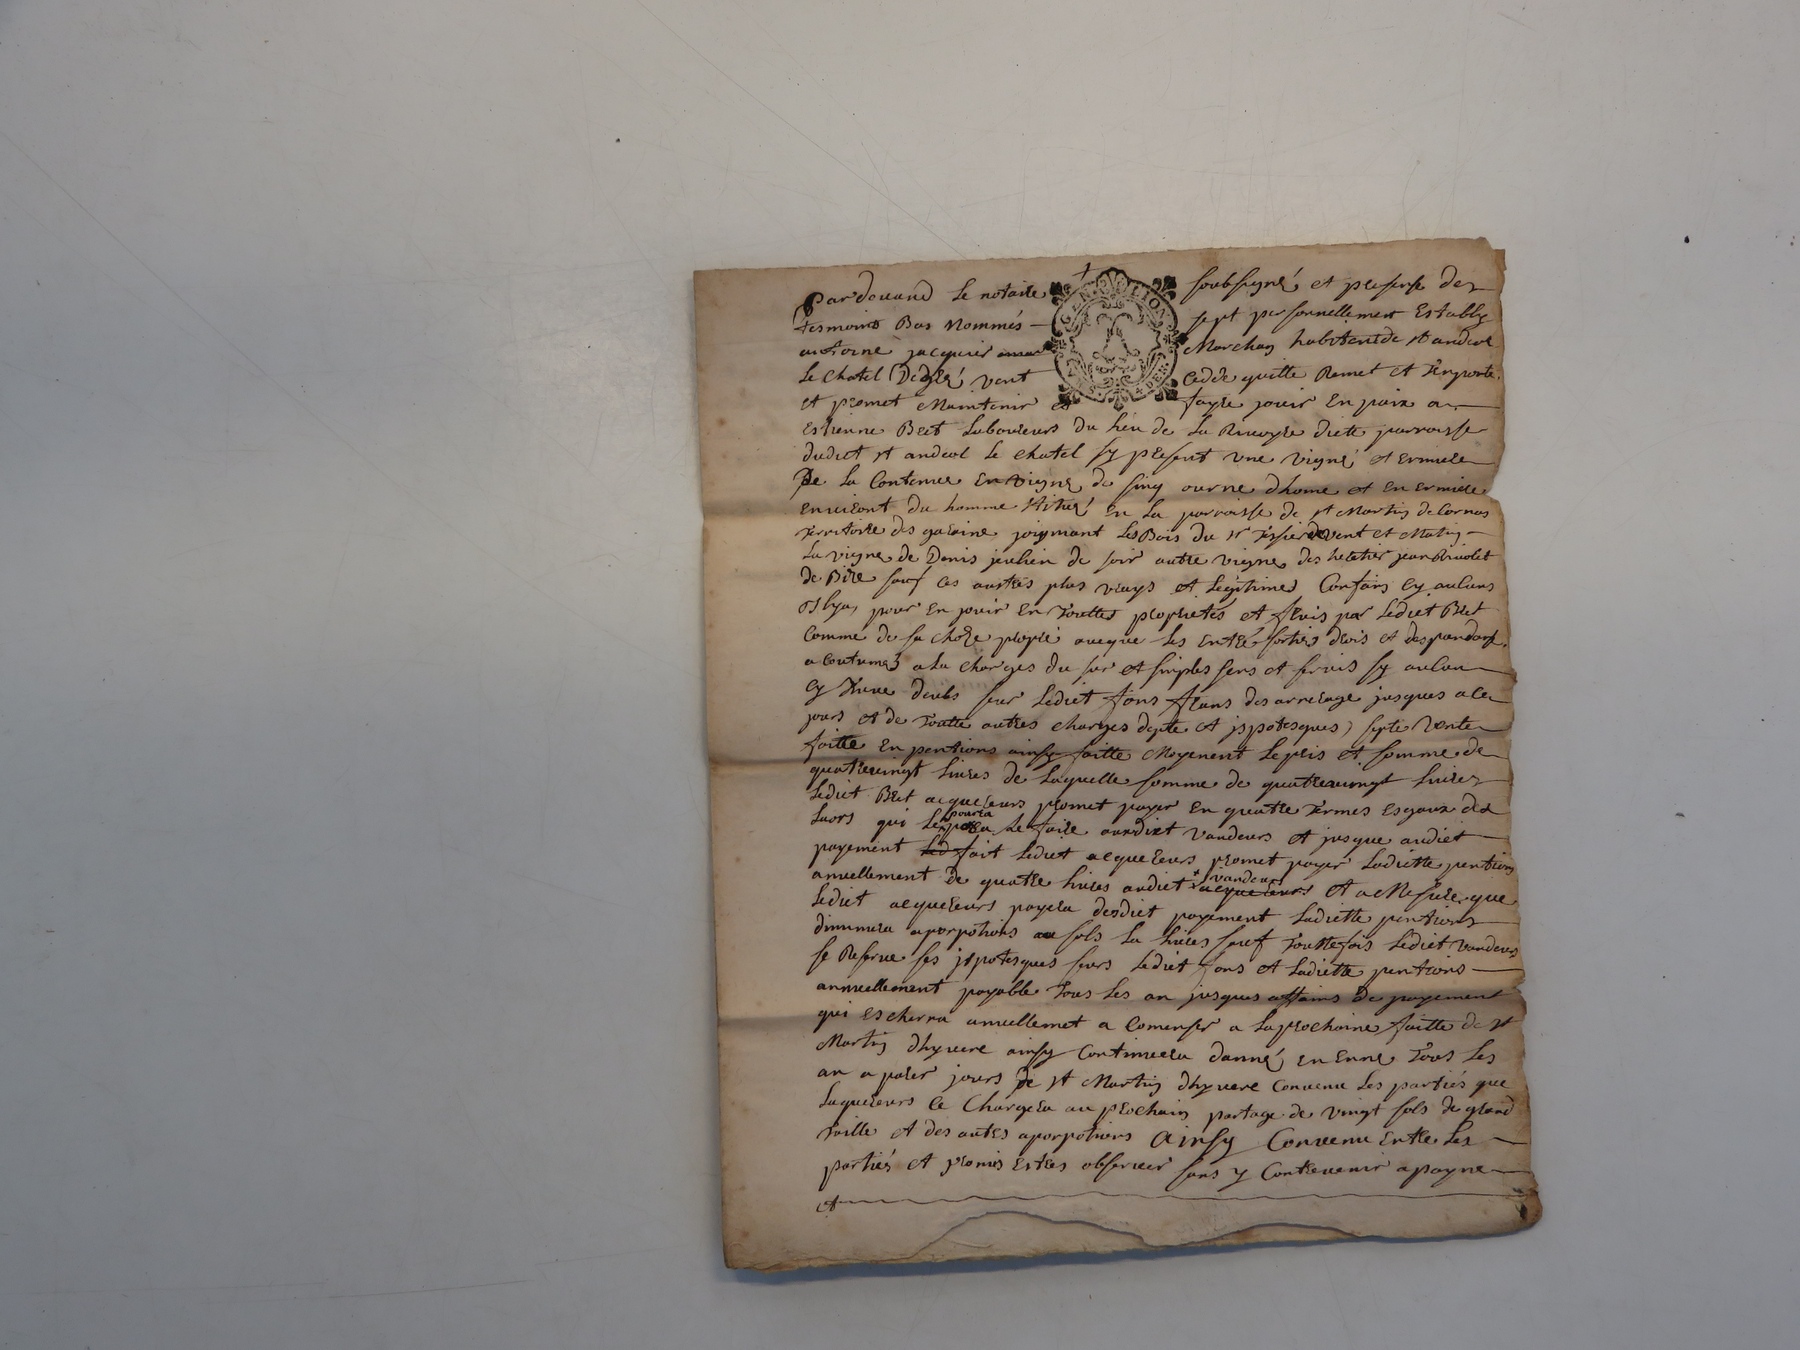 GEN LION
Pardevand Le notaire soubsigné et presense des
tesmoins Bas Nommés sept personnellement Establi
antoine jacquier Marchan habitent de st andeol
Le Chatel De gré vent Cedde quitte Remet et Tenporte
et promet Maintenir et fayre jouir En paix a
Estienne Bret Laboureurs du lieu de La Rivoyre diette parroisse
dudict st andeol Le chatel sy present vne vigne et Ermiere
De La Contenue En vigne de sinq ourne dhome et en Ermiere
environt du homme situé En La parroisse de st Martin de Cornas
Territoire des gareine joignant Les Bois du sr Tessier de vent et Matin
La vigne de Denis jullien de soir autre vigne des heretier jean
de Bize sauf Ces austres plus vrays et Legitimes Confains sy aulcuns
pour En jouir En Touttes proprietés et fruis par Ledict Bret
Comme de sa chose propre aveque Les Entré sorties drois et despandanse
acoutumé a La charges du sur et simples sens et servis sy aulcun
En Trouve deubs sur Ledict fons frans des arrerage jusques a Ce
jours et de Toutte autres charges depte et jspotesques septe Vente
faitte En pentions ainsy faitte Moyenent Le pris et somme de
quatrevingt Livres de Laquelle somme de quatrevingt Livres
Ledict Bret acquereurs promet payer En quatre Termes esgaux des
Lhors qui Le poura Le faire audict vandeurs et jusque audict
payement Led fait Ledict acquereurs promet payer Ladiette pention
annuellement de quatre Livres audict vandeur acquereurs et a Mesure que
Ledict acquereurs payera desdict payement Ladiette pentions
diminuera aporpotions au sols La Livres sauf Touttefois Ledict vandeurs
se Reserve ses jspotesques surs Ledict fons et Ladiette pentions
annuellement payable Tous Les an jusques affains de payement
qui Escherra annuellemet a Comenser a La prochaine faitte de st
Martin dhyvere ainsy Continuera danné en Enne Tous Les
an a parer jours de st Martin dhyvere Convenu Les parties que
Laquereurs Ce Chargera au prochain partage de vingt sols de grand
Taille et des autes aporpotions Ainsy Convenu Entre Les
parties et promis Estres observer sans y Contrevenir a payne
et